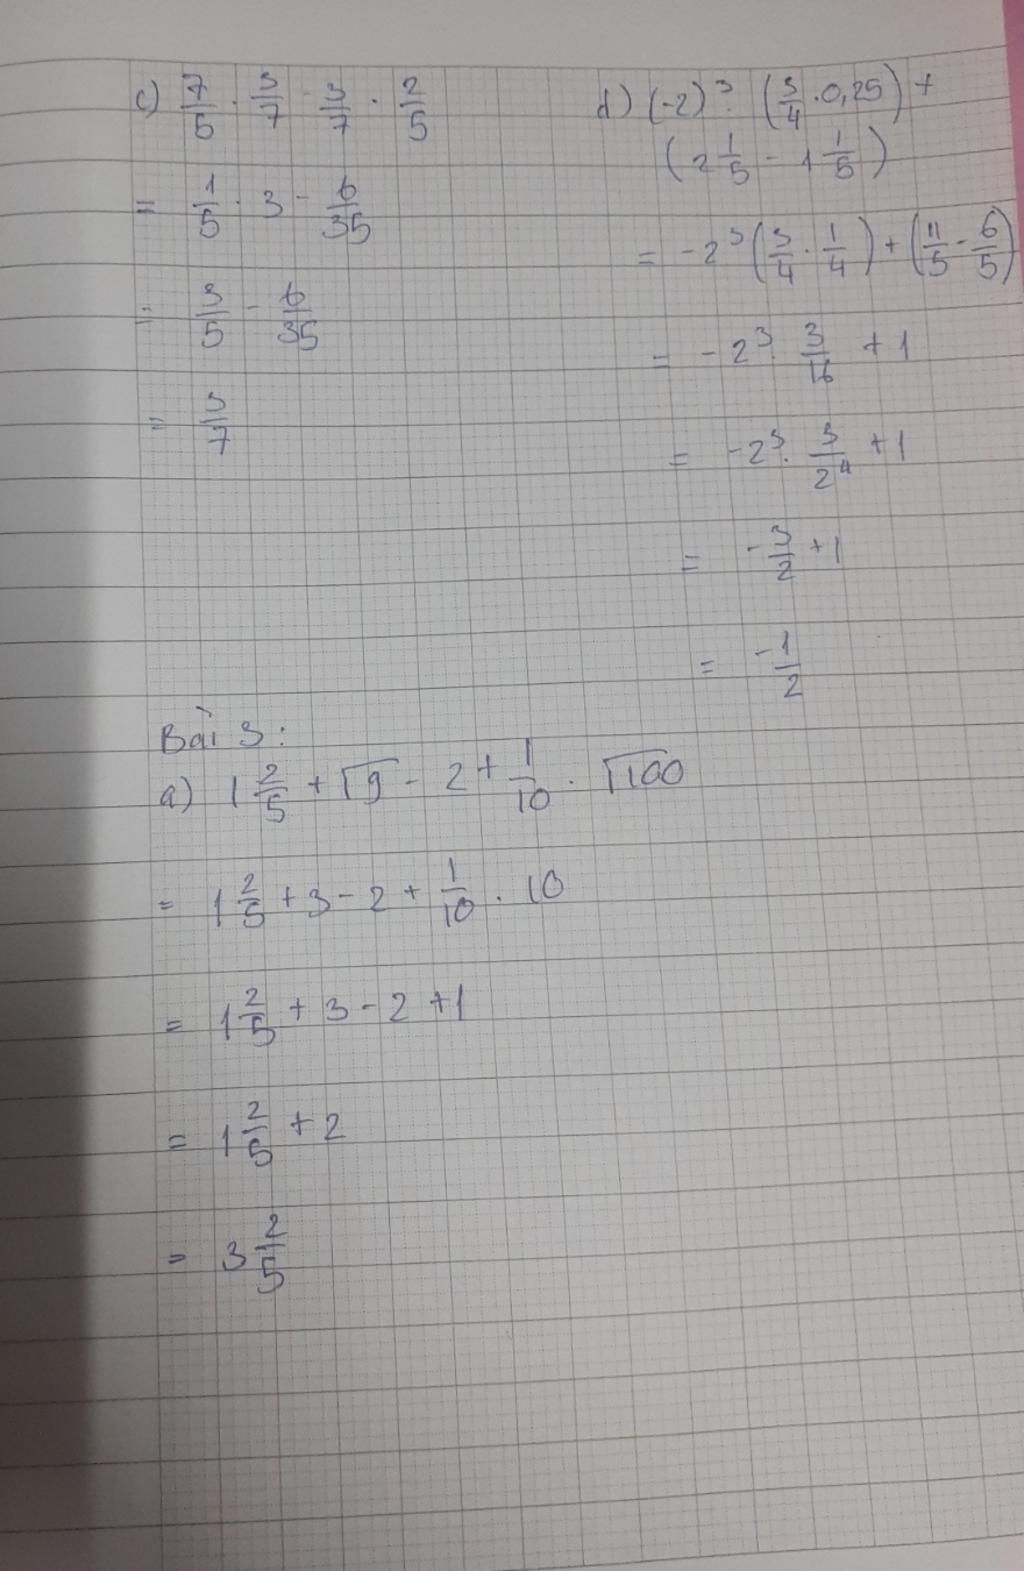 c) 7/5 · 3/7 - 3/7 · 2/5
= 1/5 · 3 - 6/35
= 3/5 - 6/35
= 3/7
d) (-2)³ · (3/4 · 0,25) +
(2 1/5 - 1 1/5)
= -2³ (3/4 · 1/4) + (11/5 - 6/5)
= -2³ · 3/16 + 1
= -2³ · 3/2⁴ + 1
= -3/2 + 1
= -1/2
Bài 3:
a) 1 2/5 + √9 - 2 + 1/10 · √100
= 1 2/5 + 3 - 2 + 1/10 · 10
= 1 2/5 + 3 - 2 + 1
= 1 2/5 + 2
= 3 2/5